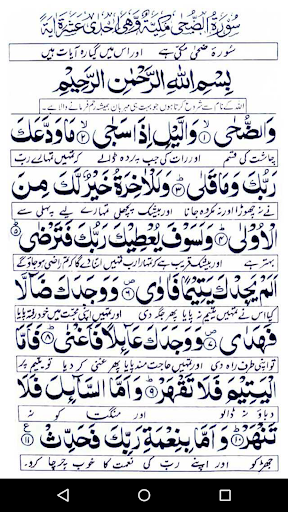 سُوْرَةُ الضُّحٰى مَكِّيَّةٌ وَّهِيَ اِحْدٰى عَشْرَةَ اٰيَةً
سورۂ ضحیٰ مکی ہے اور اس میں گیارہ آیات ہیں
بِسْمِ اللهِ الرَّحْمٰنِ الرَّحِيْمِ
اللہ کے نام سے شروع کرتا ہوں جو بہت ہی مہربان ہمیشہ رحم فرمانے والا ہے۔
وَالضُّحٰى ۙ﴿۱﴾ وَالَّيْلِ اِذَا سَجٰى ۙ﴿۲﴾ مَا وَدَّعَكَ
چاشت کی قسم اور رات کی جب پردہ ڈالے کہ تمہیں تمہارے رب
رَبُّكَ وَمَا قَلٰى ﴿۳﴾ وَلَلْاٰخِرَةُ خَيْرٌ لَّكَ مِنَ
نے نہ چھوڑا اور نہ مکروہ جانا اور بیشک پچھلی تمہارے لیے پہلی سے
الْاُوْلٰى ﴿۴﴾ وَلَسَوْفَ يُعْطِيْكَ رَبُّكَ فَتَرْضٰى ﴿۵﴾
بہتر ہے اور بیشک قریب ہے کہ تمہارا رب تمہیں اتنا دے گا کہ تم راضی ہو جاؤ گے
اَلَمْ يَجِدْكَ يَتِيْمًا فَاٰوٰى ﴿۶﴾ وَوَجَدَكَ ضَآلًّا
کیا اس نے تمہیں یتیم نہ پایا پھر جگہ دی اور تمہیں اپنی محبت میں خود رفتہ پایا
فَهَدٰى ﴿۷﴾ وَوَجَدَكَ عَآئِلًا فَاَغْنٰى ﴿۸﴾ فَاَمَّا
تو اپنی طرف راہ دی اور تمہیں حاجت مند پایا پھر غنی کر دیا تو یتیم پر
الْيَتِيْمَ فَلَا تَقْهَرْ ﴿۹﴾ وَاَمَّا السَّآئِلَ فَلَا
دباؤ نہ ڈالو اور منگتا کو نہ
تَنْهَرْ ﴿۱۰﴾ وَاَمَّا بِنِعْمَةِ رَبِّكَ فَحَدِّثْ ﴿۱۱﴾ ع
جھڑکو اور اپنے رب کی نعمت کا خوب چرچا کرو